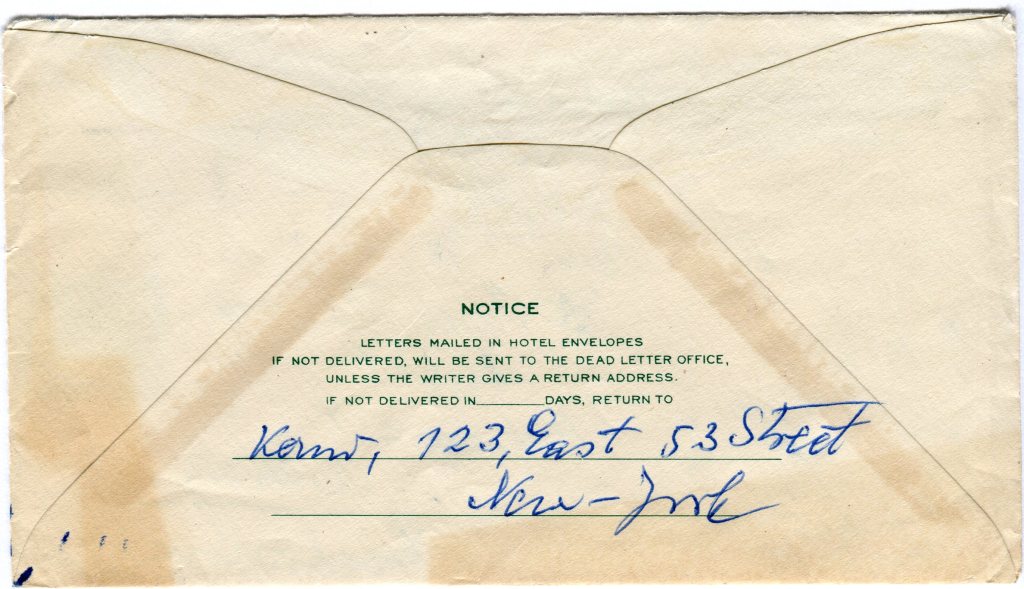 NOTICE
LETTERS MAILED IN HOTEL ENVELOPES
IF NOT DELIVERED, WILL BE SENT TO THE DEAD LETTER OFFICE,
UNLESS THE WRITER GIVES A RETURN ADDRESS.
IF NOT DELIVERED IN______DAYS, RETURN TO
123, East 53 Street
New-York